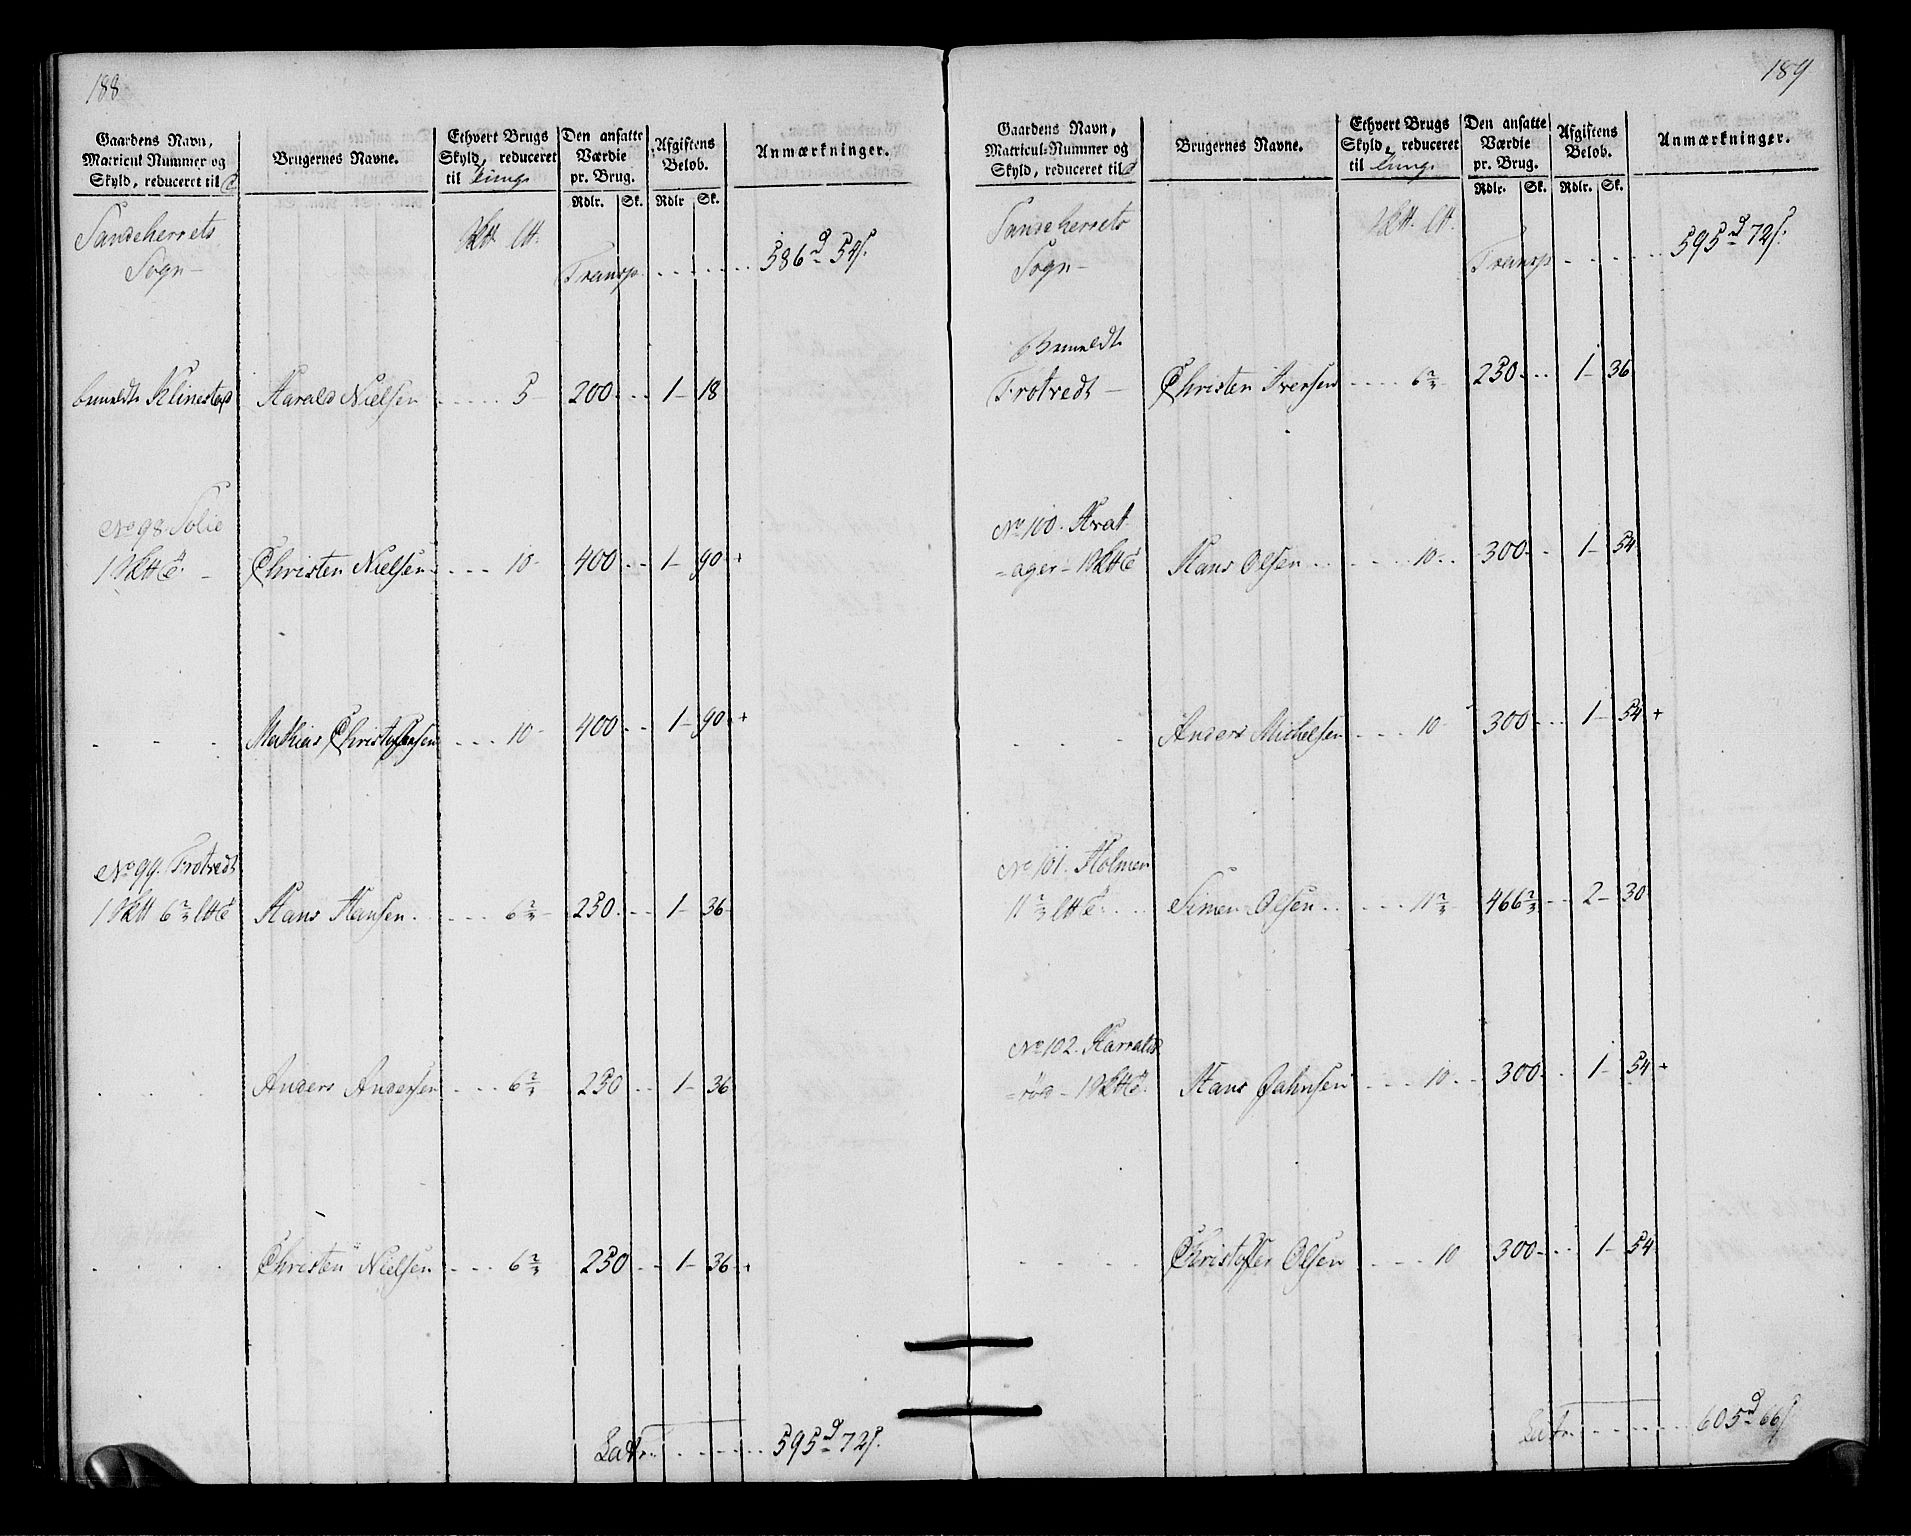 188
Gaardens Navn,
Matricul Nummer og
Skyld, reduceret til
Brugernes Navne.
Ethvert Brugs
Skyld, reduceret
til Tunge
Den ansatte
Værdie
pr. Brug.
Afgiftens
Beløb.
Anmærkninger.
Rdlr. Sk. Rdlr Sk.
Sandeherrets
Sogn
Transp. 586 54
bemeldte Klinestad Harald Nielsen 5 200 1 18
No 98 Solie
Christen Nielsen 10 400 1 90 +
Mathias Christophersen 10 400 1 90 +
No 99. Trotvedt
Hans Hansen 6⅔ 250 1 36
Anders Andersen 6⅔ 250 1 36
Christen Nielsen 6⅔ 250 1 36 +
Latr. 595 72
189
Gaardens Navn,
Matricul-Nummer og
Skyld, reduceret til
Brugernes Navne.
Ethvert Brugs
Skyld, reduceret
til Tunge
Den ansatte
Værdie
pr. Brug.
Afgiftens
Beløb.
Anmærkninger.
Rdlr. Sk. Rdlr. Sk.
Sandeherrets
Sogn
Transp 595 72
Bemeldte
Trotvedt Christen Iversen 6⅔ 250 1 36
No 100.
ager Hans Olsen 10 300 1 54
Anders Michelsen 10 300 1 54 +
No 101. Holmen
11⅔ Simen Olsen 11⅔ 466⅔ 2 30
No 102. Harralds
rød Hans Jahnsen 10 300 1 54 +
Christoffer Olsen 10 300 1 54
Latr. 605 66